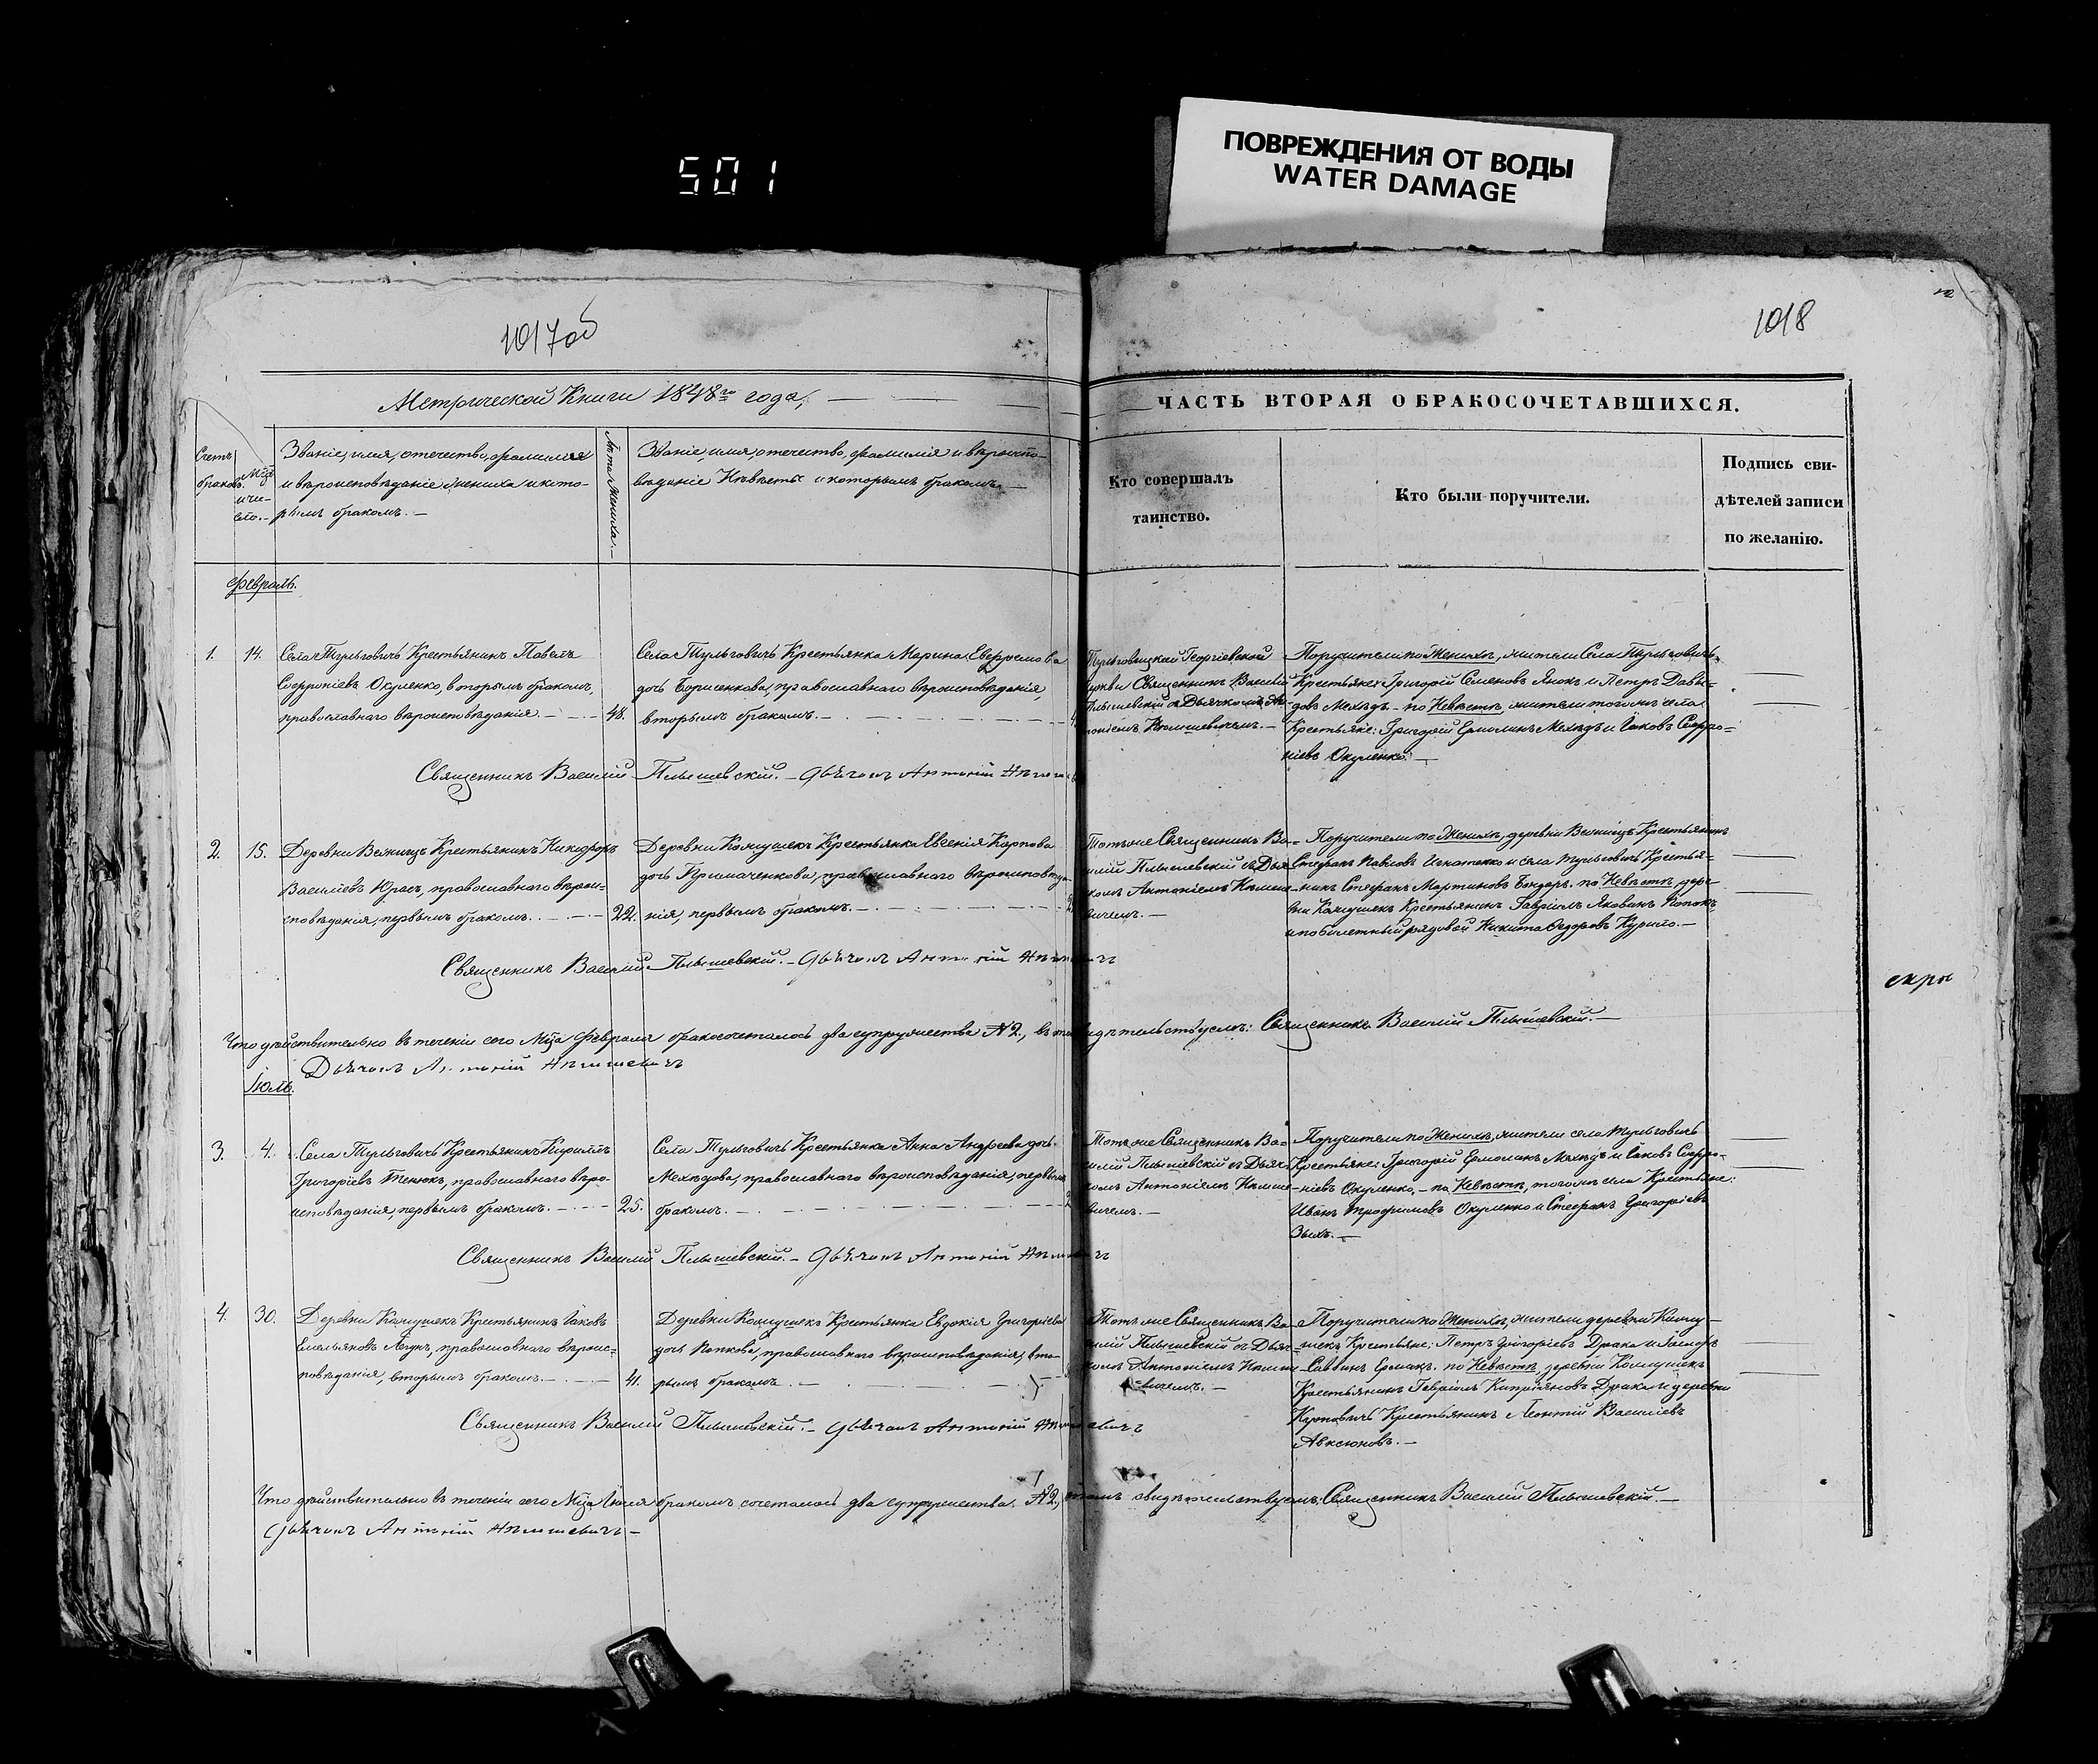 501
ПОВРЕЖДЕНИЯ ОТ ВОДЫ
WATER DAMAGE
1017об
1018
Метрической Книги 1848го года,
ЧАСТЬ ВТОРАЯ О БРАКОСОЧЕТАВШИХСЯ.
Счетъ
браковъ.
Мца
и чи-
сло.
Званіе, имя, отечество, фамилія
и вѣроисповѣданіе жениха и кото-
рымъ бракомъ.
Лѣта жениха.
Званіе, имя, отечество, фамилія и вѣроиспо-
вѣданіе Невѣсты и которымъ бракомъ.
Кто совершалъ
таинство.
Кто были поручители.
Подпись сви-
дѣтелей записи
по желанію.
Февраль.
1.
14.
Села Тульговичъ Крестьянинъ Павелъ
Софроніевъ Окуленко, вторымъ бракомъ,
православнаго вѣроисповѣданія.
48.
Села Тульговичъ Крестьянка Марина Евфросимова
дочь Борисенкова, православнаго вѣроисповѣданія,
вторымъ бракомъ.
Тульговицкой Георгіевской
Церкви Священникъ Василій
Плышевскій съ Дьячкомъ Ан-
Поручители по Женихѣ, жители Села Тульговичъ
Крестьяне: Григорій Семеновъ Янокъ и Петръ Давы-
довъ Мехедъ - по Невѣстѣ, жители того же села
Крестьяне: Григорій Ермолинъ Мехедъ и Іаковъ Софро-
ніевъ Окуленко.
Священникъ Василій Плышевскій. - Дьячокъ Антоній
2.
15.
Деревни Вежищъ Крестьянинъ Никифоръ
Василіевъ Юрасъ, православнаго вѣрои-
сповѣданія, первымъ бракомъ.
22.
Деревни Кожушекъ Крестьянка Евгенія Карпова
дочь Примаченкова, православнаго вѣроисповѣда-
нія, первымъ бракомъ.
Тотъ же Священникъ Ва-
силій Плышевскій съ Дьяч-
комъ Антоніемъ
Поручители по Женихѣ, деревни Вежищъ Крестьянинъ
Стефанъ Павловъ Игнатенко и села Тульговичъ Крестья-
нинъ Стефанъ Мартиновъ Бондарь. по Невѣстѣ, дере-
вни Кожушекъ Крестьянинъ Гавріилъ Яковинъ Попокъ,
и побилетный рядовой Никита Федоровъ Курило.
Священникъ Василій Плышевскій. - Дьячокъ Антоній
скры
Что дѣйствительно въ теченіи сего Мца Февраля бракосочеталось два супружества № 2, въ томъ свидѣтельствуемъ: Священникъ Василій Плышевскій.
Дьячокъ Антоній
Іюль.
3.
4.
Села Тульговичъ Крестьянинъ Кириллъ
Григоріевъ Тенюкъ, православнаго вѣро-
исповѣданія, первымъ бракомъ.
25.
Села Тульговичъ Крестьянка Анна Андреева дочь
Мехедова, православнаго вѣроисповѣданія, первымъ
бракомъ.
Тотъ же Священникъ Ва-
силій Плышевскій съ Дьяч-
комъ Антоніемъ
Поручители по Женихѣ, жители села Тульговичъ
Крестьяне: Григорій Ермолинъ Мехедъ и Іаковъ Софро-
ніевъ Окуленко, - по Невѣстѣ, того же села Крестьяне:
Иванъ Трофимовъ Окуленко и Стефанъ Григоріевъ
Зыль.
Священникъ Василій Плышевскій. - Дьячокъ Антоній
4.
30.
Деревни Кожушекъ Крестьянинъ Іаковъ
Емельяновъ Легунъ, православнаго вѣроис-
повѣданія, вторымъ бракомъ.
41.
Деревни Кожушекъ Крестьянка Евдокія Григоріева
дочь Попкова, православнаго вѣроисповѣданія, вто-
рымъ бракомъ.
Тотъ же Священникъ Ва-
силій Плышевскій съ Дьяч-
комъ Антоніемъ
Поручители по Женихѣ, жители деревни Кожу-
шекъ Крестьяне: Петръ Григоріевъ Драка и Іосифъ
Саввинъ Ермакъ. по Невѣстѣ, деревни Кожушекъ
Крестьянинъ Гавріилъ Кипріяновъ Драка и деревни
Куповичъ Крестьянинъ Леонтій Василіевъ
Авксюновъ.
Священникъ Василій Плышевскій. - Дьячокъ Антоній
Что дѣйствительно въ теченіи сего Мца Іюля бракомъ сочеталось два супружества № 2, въ томъ свидѣтельствуемъ: Священникъ Василій Плышевскій.
Дьячокъ Антоній